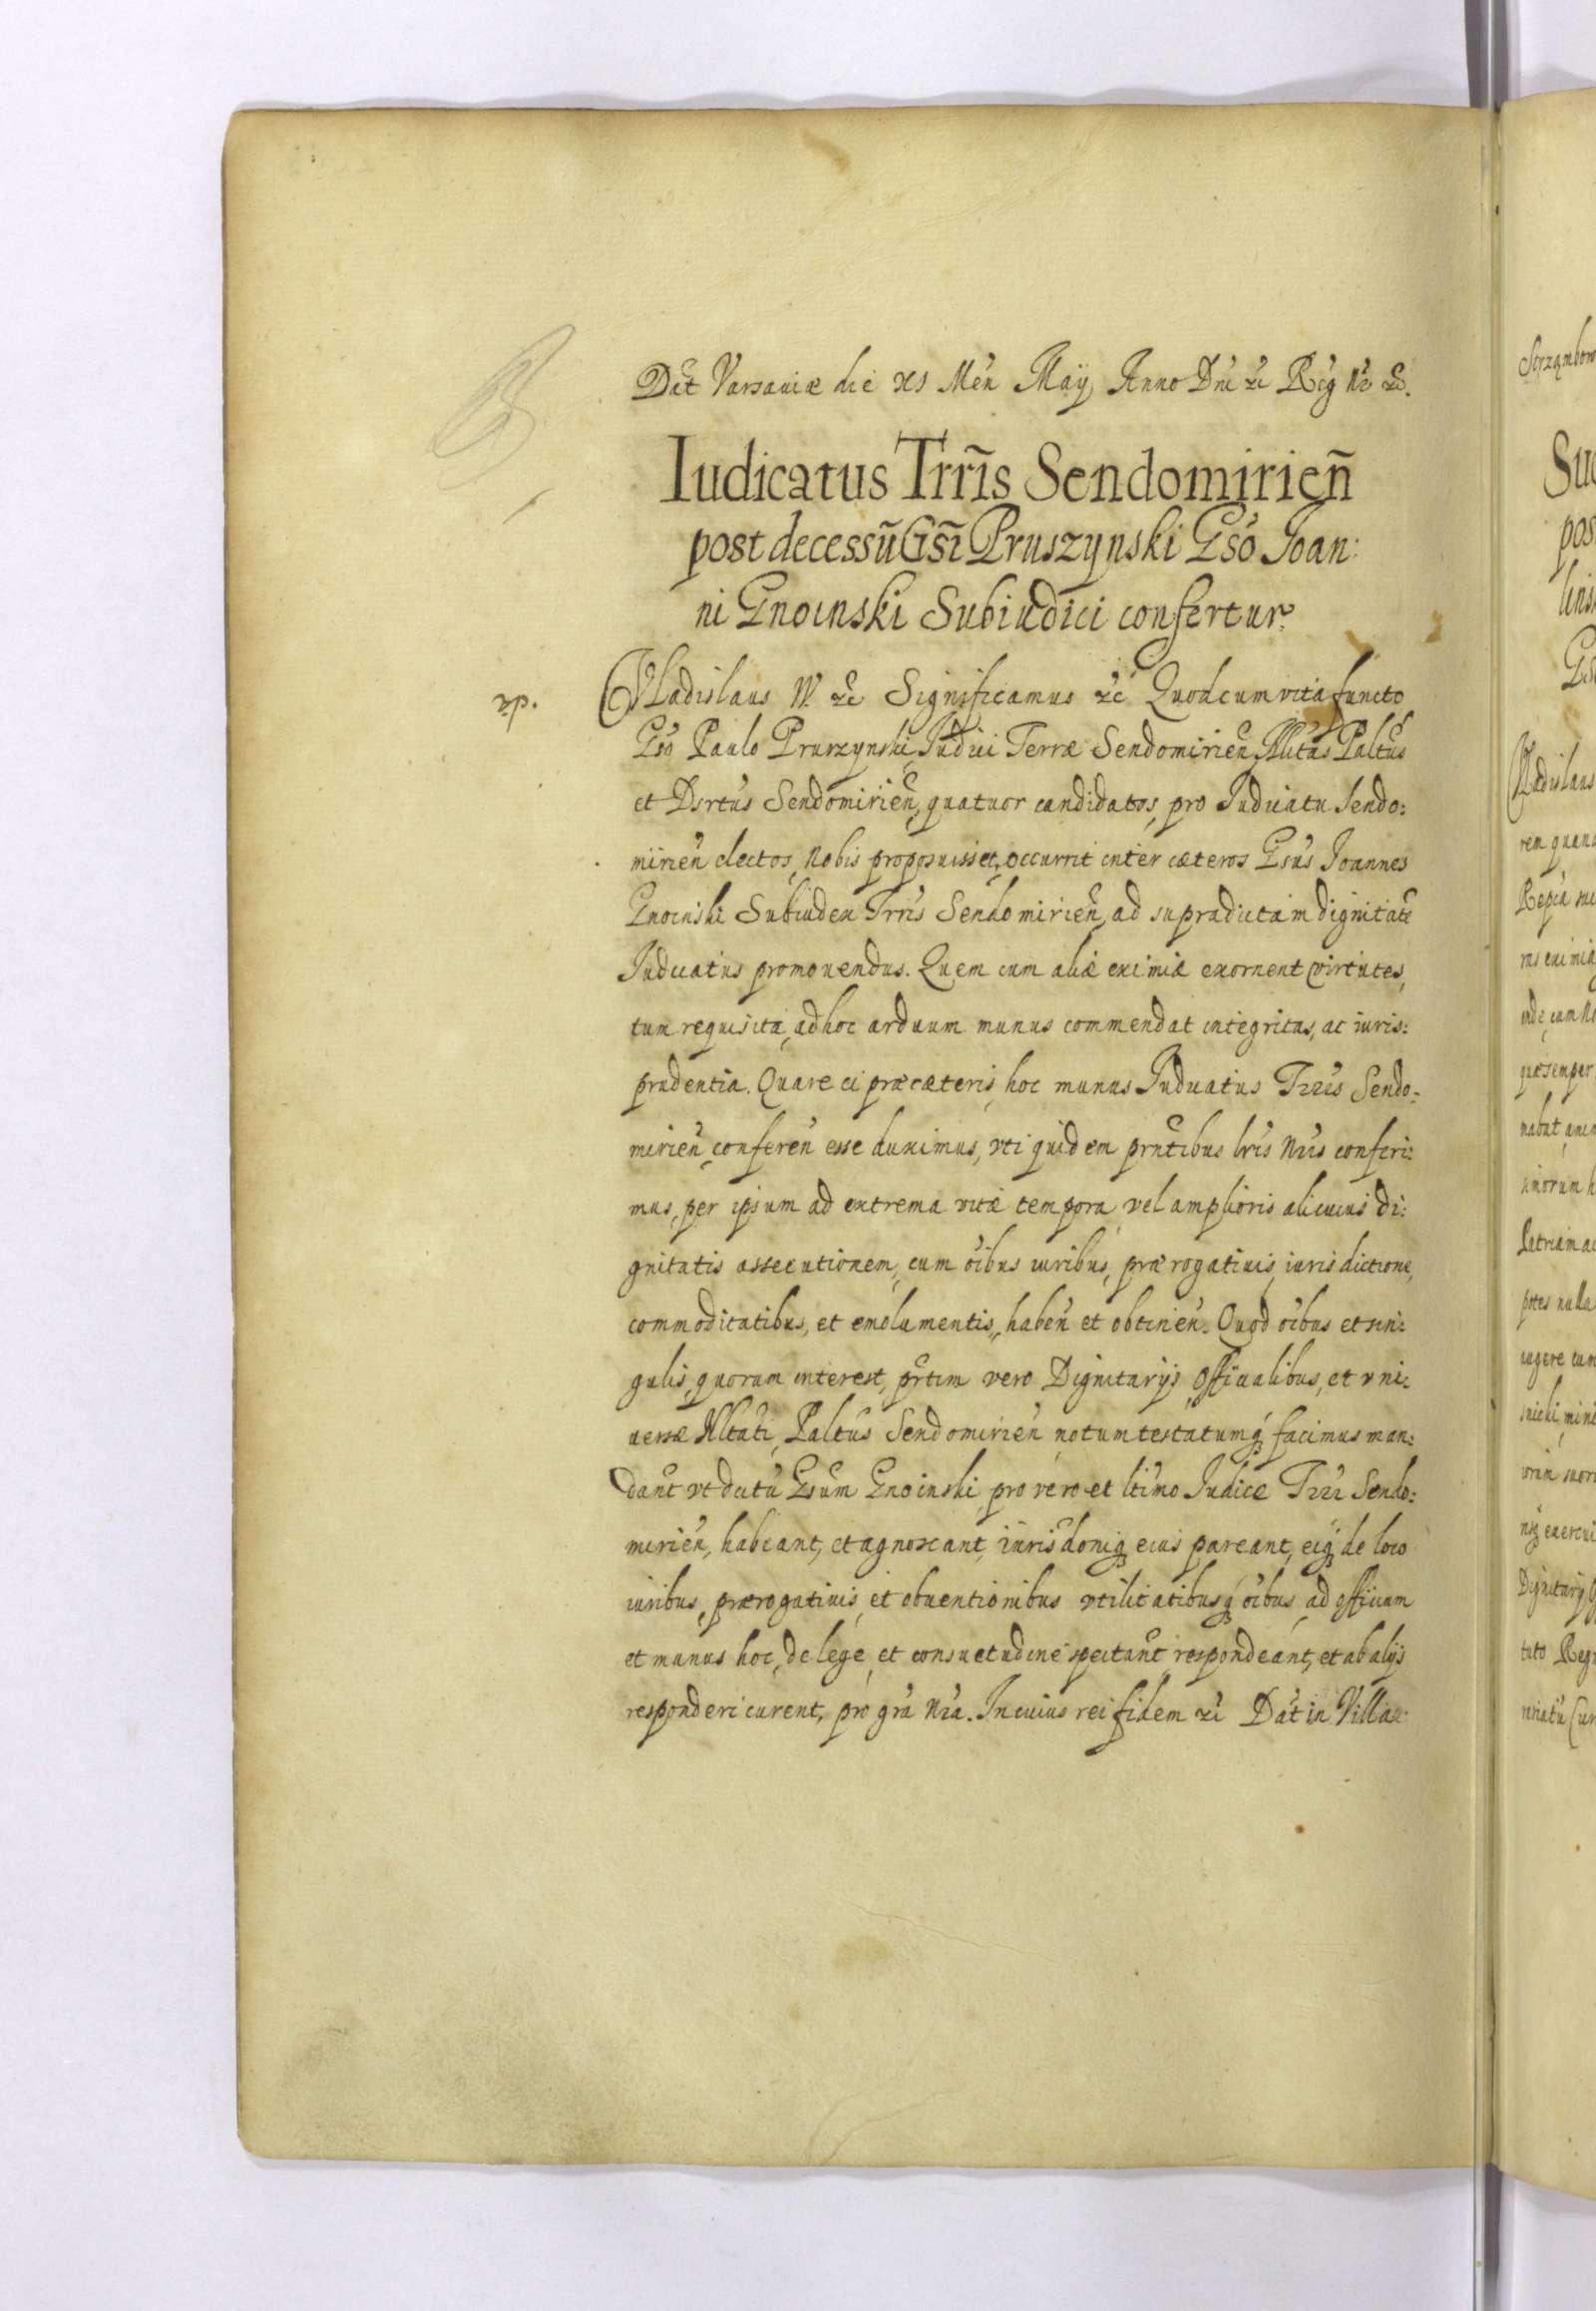 Dat̃ Varsauiæ die XI Men̄ Maÿ Anno Dni ꝛc̃ Reg Nr̃ ꝛc̃.
Iudicatus Trrĩs Sendomirien̄
post decessũ Gsĩ Pruszynski Gso Joan:
ni Gnoinski Subiudici confertur.
Vladislaus IV. ꝛc̃ Significamus ꝛc̃ Quod cum vita functo
Gso Paulo Pruszynski, Iudici Terræ Sendomirien̄, Paltus
et Dsrtus Sendomirien̄, quatuor candidatos, pro Iudicatu Sendo:
mirien̄ electos, Nobis proposuisset, occurrit inter cæteros Gsus Joannes
Gnoinski Subiudex Trris Sendomirien̄, ad supradictam dignitatẽ
Iudicatus promouendus. Quem cum aliæ eximiæ exornent virtutes,
tum requisita, ad hoc arduum munus commendat integritas, ac iuris:
prudentia. Quare ei præ cæteris, hoc munus Iudicatus Trris Sendo:
mirien̄ conferen̄ esse duximus, vti quidem prñtibus lris Nris conferi:
mus, per ipsum ad extrema vitæ tempora, vel amplioris alicuius di:
gnitatis assecutionem, cum oĩbus iuribus, prærogatiuis, iurisdictione,
commoditatibus, et emolumentis, haben̄ et obtinen̄. Quod oĩbus et sin:
gulis, quorum interest, prtim vero Dignitarijs, Officialibus, et vni:
uersæ Nltati, Paltus Sendomirien̄ notum testatumq́ꝫ facimus man:
dant̃ vt dictũ Gsum Gnoinski pro vero et ltimo Iudice Trrĩ Sendo:
mirien̄, habeant, et agnoscant, iurisdoniqꝫ eius pareant, eiqꝫ de loco
iuribus, prærogatiuis, et obuentionibus vtilitatibusqꝫ oĩbus, ad officium
et munus hoc, de lege, et consuetudine spectant̃ respondeant, et ab alijs
responderi curent, pro gra Nra. In cuius rei fidem ꝛc̃ Dat̃ in Villa